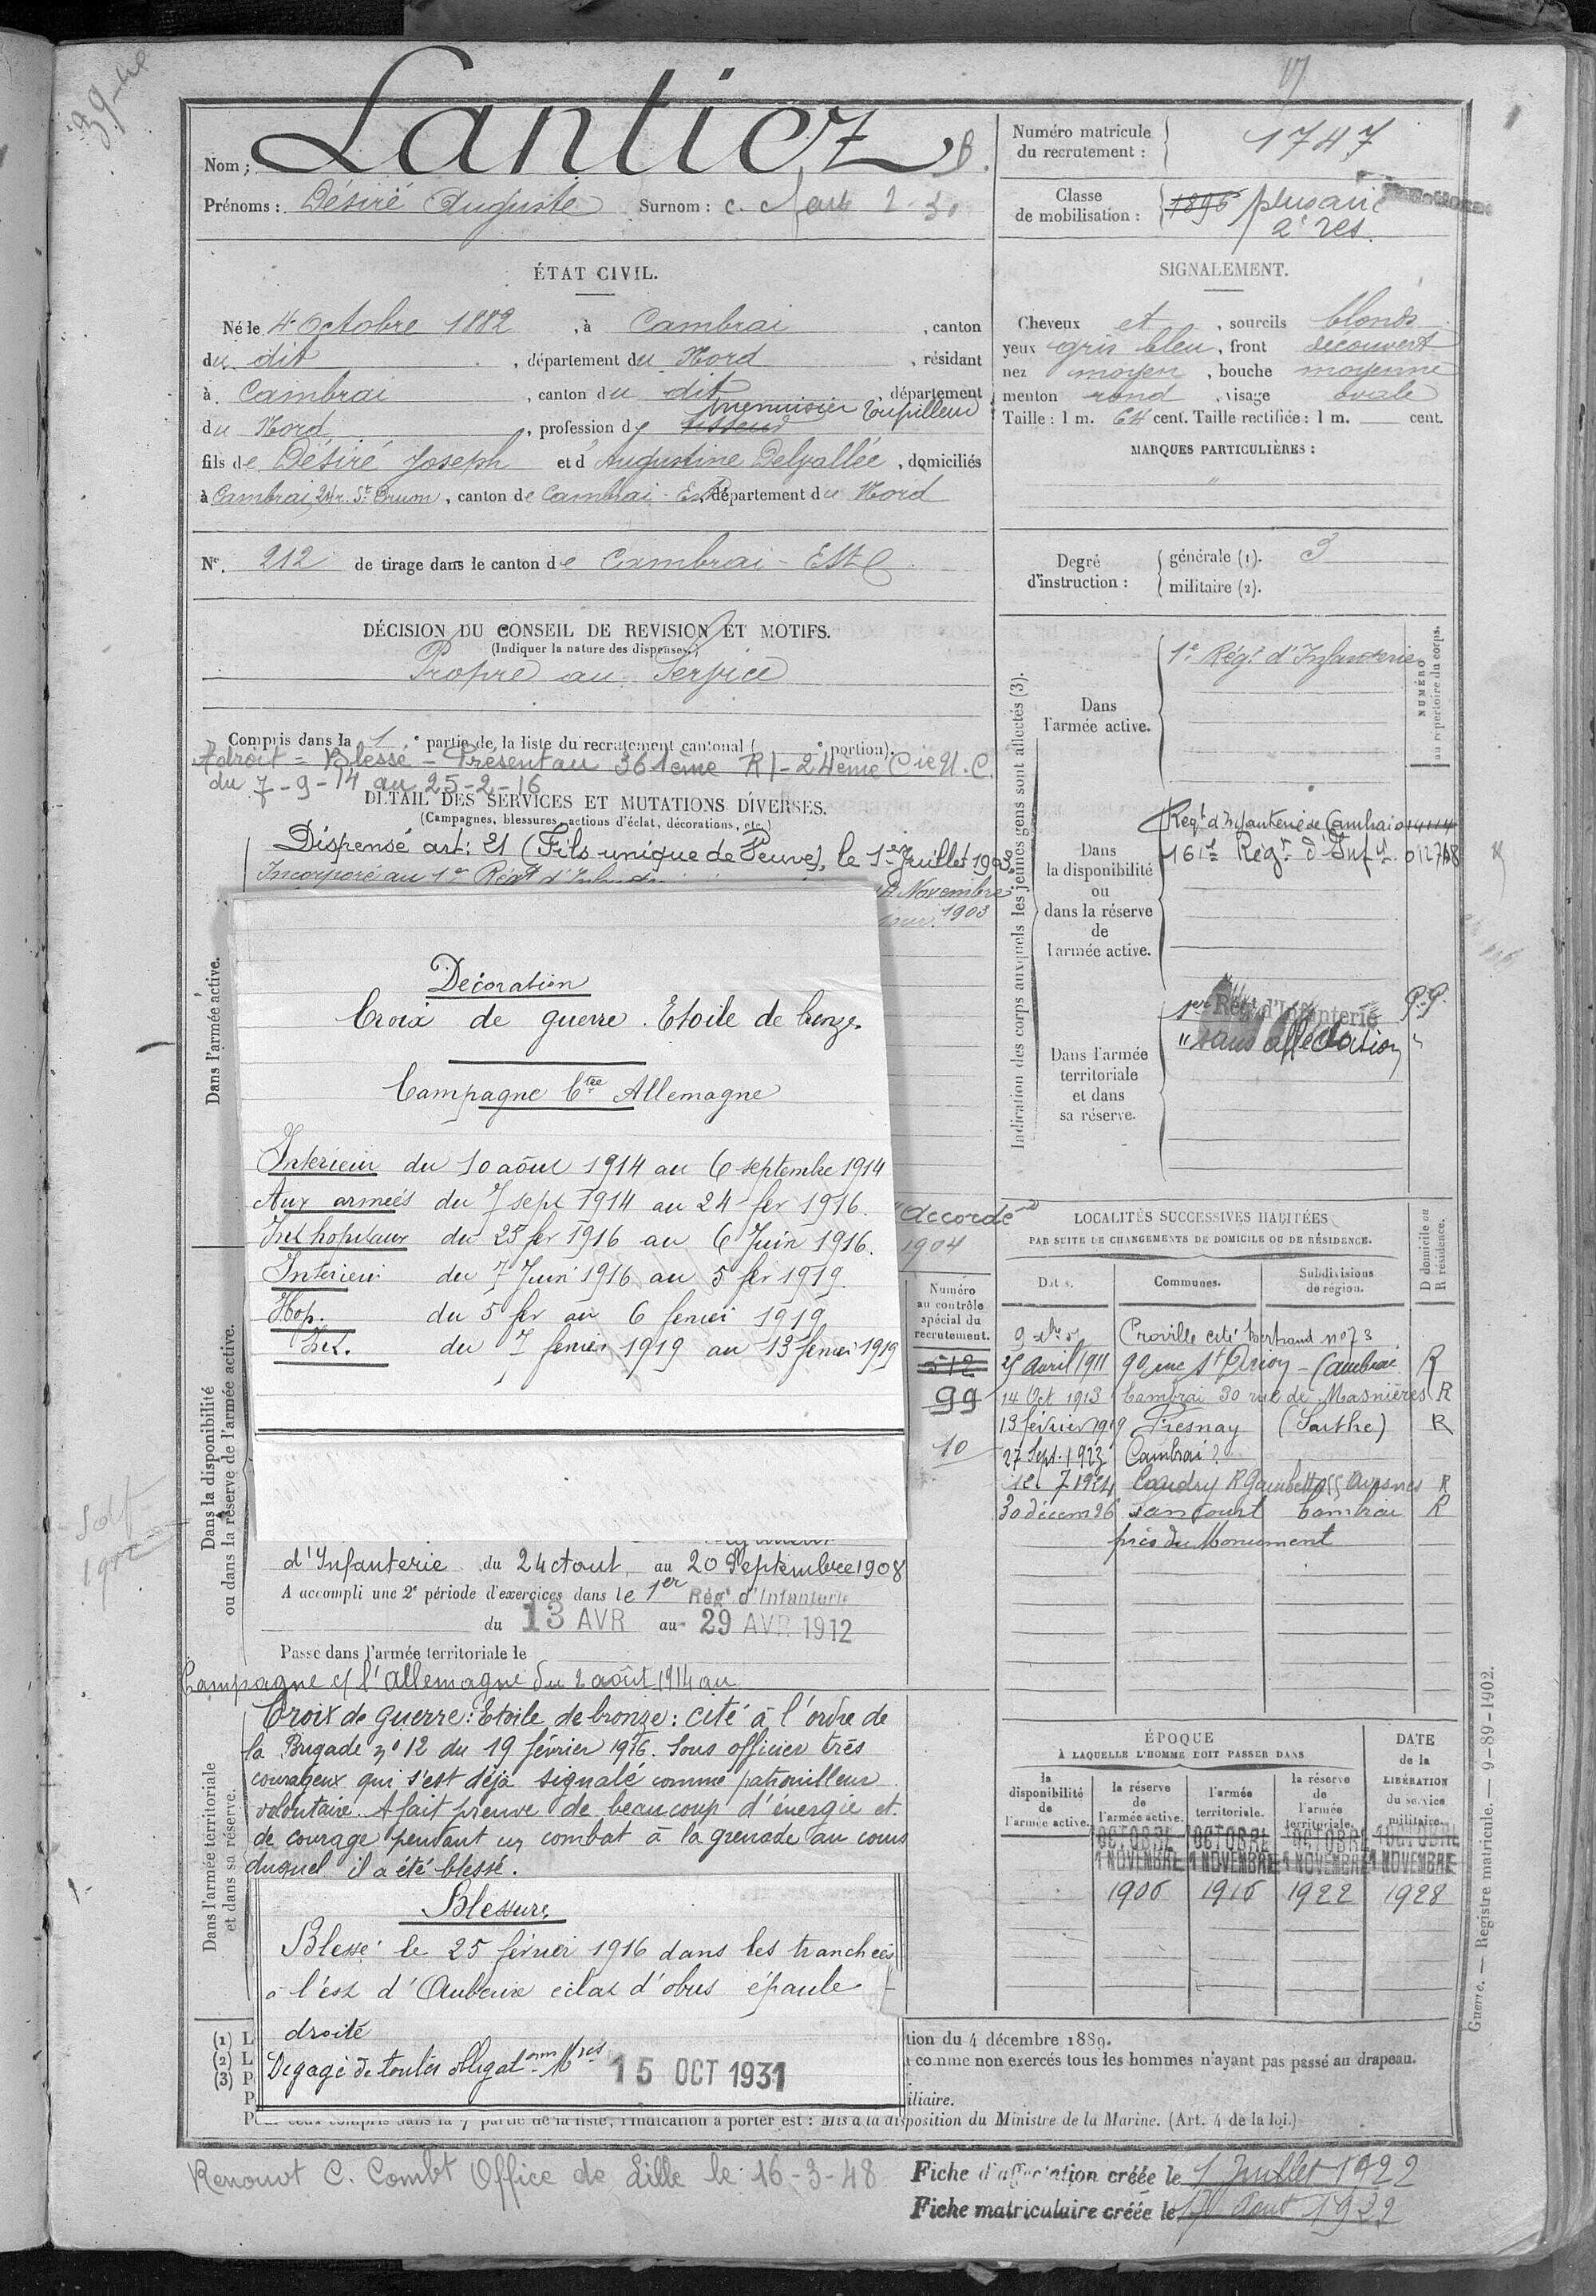 39
Nom : Lantiez
Prénoms : Désiré Auguste Surnom : c.
ÉTAT CIVIL.
Né le 4 Octobre 1882, à Cambrai, canton
du dit, département du Nord, résidant
à Cambrai, canton du dit, département
menuisier Toupilleur
du Nord, profession de tisseur
fils de Désiré Joseph et d'Augustine Delvallée, domiciliés
à Cambrai, r. St, canton de Cambrai Est, département du Nord
N° 212 de tirage dans le canton de Cambrai - Est
DÉCISION DU CONSEIL DE REVISION ET MOTIFS.
(Indiquer la nature des dispenses.)
Propre au Service
Compris dans la 1 e partie de la liste du recrutement cantonal ( e portion).
A droit = Blessé - Présent au 361eme RI - 24ème Cie U.C.
du 7-9-14 au 25-2-16
DÉTAIL DES SERVICES ET MUTATIONS DIVERSES.
(Campagnes, blessures, actions d'éclat, décorations, etc.)
Dispensé art: 21 (Fils unique de Veuve), le 1er Juillet 1903.
Incorporé au 1er Régt d'
Novembre
1903
Dans l'armée active.
Décoration
Croix de guerre. Etoile de bronze
Campagne Ctre Allemagne
Intérieur du 10 aôut 1914 au 6 septembre 1914
Aux armées du 7 sept 1914 au 24 fer 1916.
Int hopitaux du 25 fer 1916 au 6 Juin 1916.
Intérieur du 7 Juin 1916 au 5 fer 1919.
Hop. du 5 fer au 6 fevrier 1919
Int. du 7 fevrier 1919 au 13 fevrier 1919
Accordé
1904
Dans la disponibilité
ou dans la réserve de l'armée active.
Numéro
au contrôle
spécial du
recrutement.
512
99
10
d'Infanterie du 24 Aout au 20 Septembre 1908
A accompli une 2e période d'exercices dans le 1er Régt d'Infanterie
du 13 AVR au 29 AVR 1912
Passé dans l'armée territoriale le
Campagne c/ l'Allemagne du 2 août 1914 au
Dans l'armée territoriale
et dans sa réserve.
Croix de guerre : Etoile de bronze : cité à l'ordre de
la Brigade n° 12 du 19 février 1916. Sous officier très
courageux qui s'est déjà signalé comme patrouilleur
volontaire. A fait preuve de beaucoup d'énergie et
de courage pendant un combat à la grenade au cours
duquel il a été blessé.
Blessure
Blessé le 25 février 1916 dans les tranchées
à l'est d' éclat d'obus épaule
droite
Dégagé de toutes obligatons Mres 15 OCT 1931
(1) L
(2) L
(3) P
P
tion du 4 décembre 1889.
comme non exercés tous les hommes n'ayant pas passé au drapeau.
iliaire.
Pour ceux compris dans la 7 partie de la liste, l'indication à porter est : Mis à la disposition du Ministre de la Marine. (Art. 4 de la loi.)
C. Combt Office de Lille le 16-3-48
Fiche d'affectation créée le 1 Juillet 1922
Fiche matriculaire créée le 17 Aout 1922
Numéro matricule
du recrutement : 1747
Classe
de mobilisation : 1896 plus anc
2e rés.
SIGNALEMENT.
Cheveux et, sourcils blonds
yeux gris bleu, front découvert
nez moyen, bouche moyenne
menton rond, visage ovale
Taille : 1 m. 64 cent. Taille rectifiée : 1 m. cent.
MARQUES PARTICULIÈRES :
"
Degré
d'instruction :
générale (1). 3
militaire (2).
Indication des corps auxquels les jeunes gens sont affectés (3).
NUMÉRO
au répertoire du corps.
Dans
l'armée active.
1er Régt d'Infanterie
Dans
la disponibilité
ou
dans la réserve
de
l'armée active.
Régt d'Infanterie de Cambrai 014114
161e Régt d'Infie 012768
Dans l'armée
territoriale
et dans
sa réserve.
1er Régt d'Infanterie
"sans affectation"
LOCALITÉS SUCCESSIVES HABITÉES
PAR SUITE DE CHANGEMENTS DE DOMICILE OU DE RÉSIDENCE.
D domicile ou
R résidence.
Dates.
Communes.
Subdivisions
de région.
Proville cité Bertrand n° 73
25 avril 1911 90 rue St - Cambrai R
14 Oct 1913 Cambrai 30 rue de Masnières R
13 février 1919 Fresnay (Sarthe) R
27 Sept. 1923 Cambrai ?
Caudry R Gambetta Avesnes R
30 décem 26 Cambrai R
près du Monument
ÉPOQUE
À LAQUELLE L'HOMME DOIT PASSER DANS
la
disponibilité
de
l'armée active.
la réserve
de
l'armée active.
l'armée
territoriale.
la réserve
de
l'armée
territoriale.
DATE
de la
LIBÉRATION
du service
militaire.
OCTOBRE 1 OCTOBRE 1 OCTOBRE 1 OCTOBRE
1 NOVEMBRE 1 NOVEMBRE 1 NOVEMBRE 1 NOVEMBRE
1906 1916 1922 1928
Guerre. — Registre matricule. — 9-89-1902.